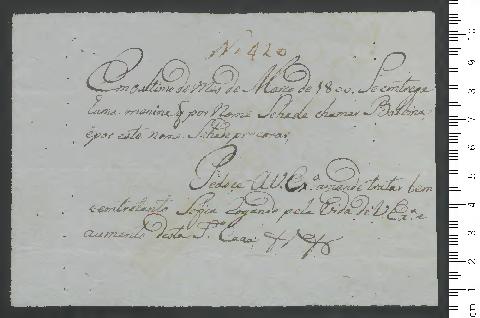 N. 420
Em o ultimo do Mes de Março de 1800. Se emtrega
huma menina q por Nome Sehade chamar Balbina,
e por este nome Sehade procurar,
Pedece A V. Exª. amande tratar bem
em tretanto fica Rogando pela Vida de V. Exª. e
aumento desta Sª. Caza.